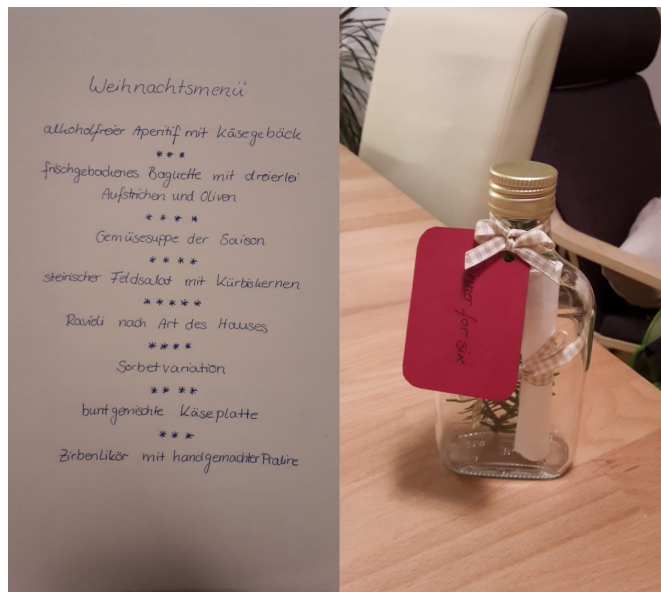 Weihnachtsmenü
alkoholfreier Aperitif mit Käsegebäck
***
frischgebackenes Baguette mit dreierlei
Aufstrichen und Oliven
****
Gemüsesuppe der Saison
****
steirischer Feldsalat mit Kürbiskernen
*****
Ravioli nach Art des Hauses
****
Sorbetvariation
****
buntgemischte Käseplatte
***
Zirbenlikör mit handgemachter Praline
for six